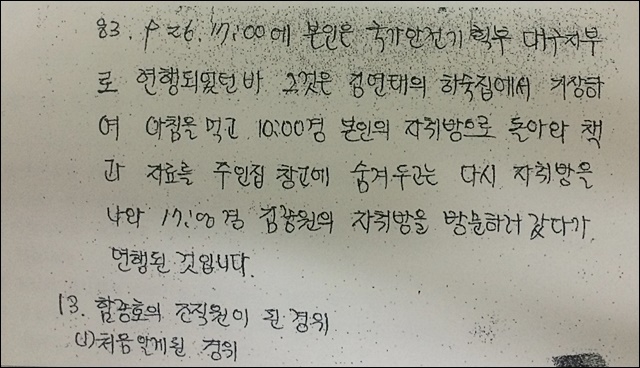 83. 9. 26. 17:00에 본인은 국가안전기획부 대구지부
로 연행되었던바 그것은 김연태의 하숙집에서 기상하
여 아침을 먹고 10:00경 본인의 자취방으로 돌아와 책
과 자료를 주인집 창고에 숨겨두고는 다시 자취방을
나와 17:00경 김광원의 자취방을 방문하러 갔다가
연행된 것입니다.
13. 함종호의 조직원이 된 경위
(1) 처음알게된 경위